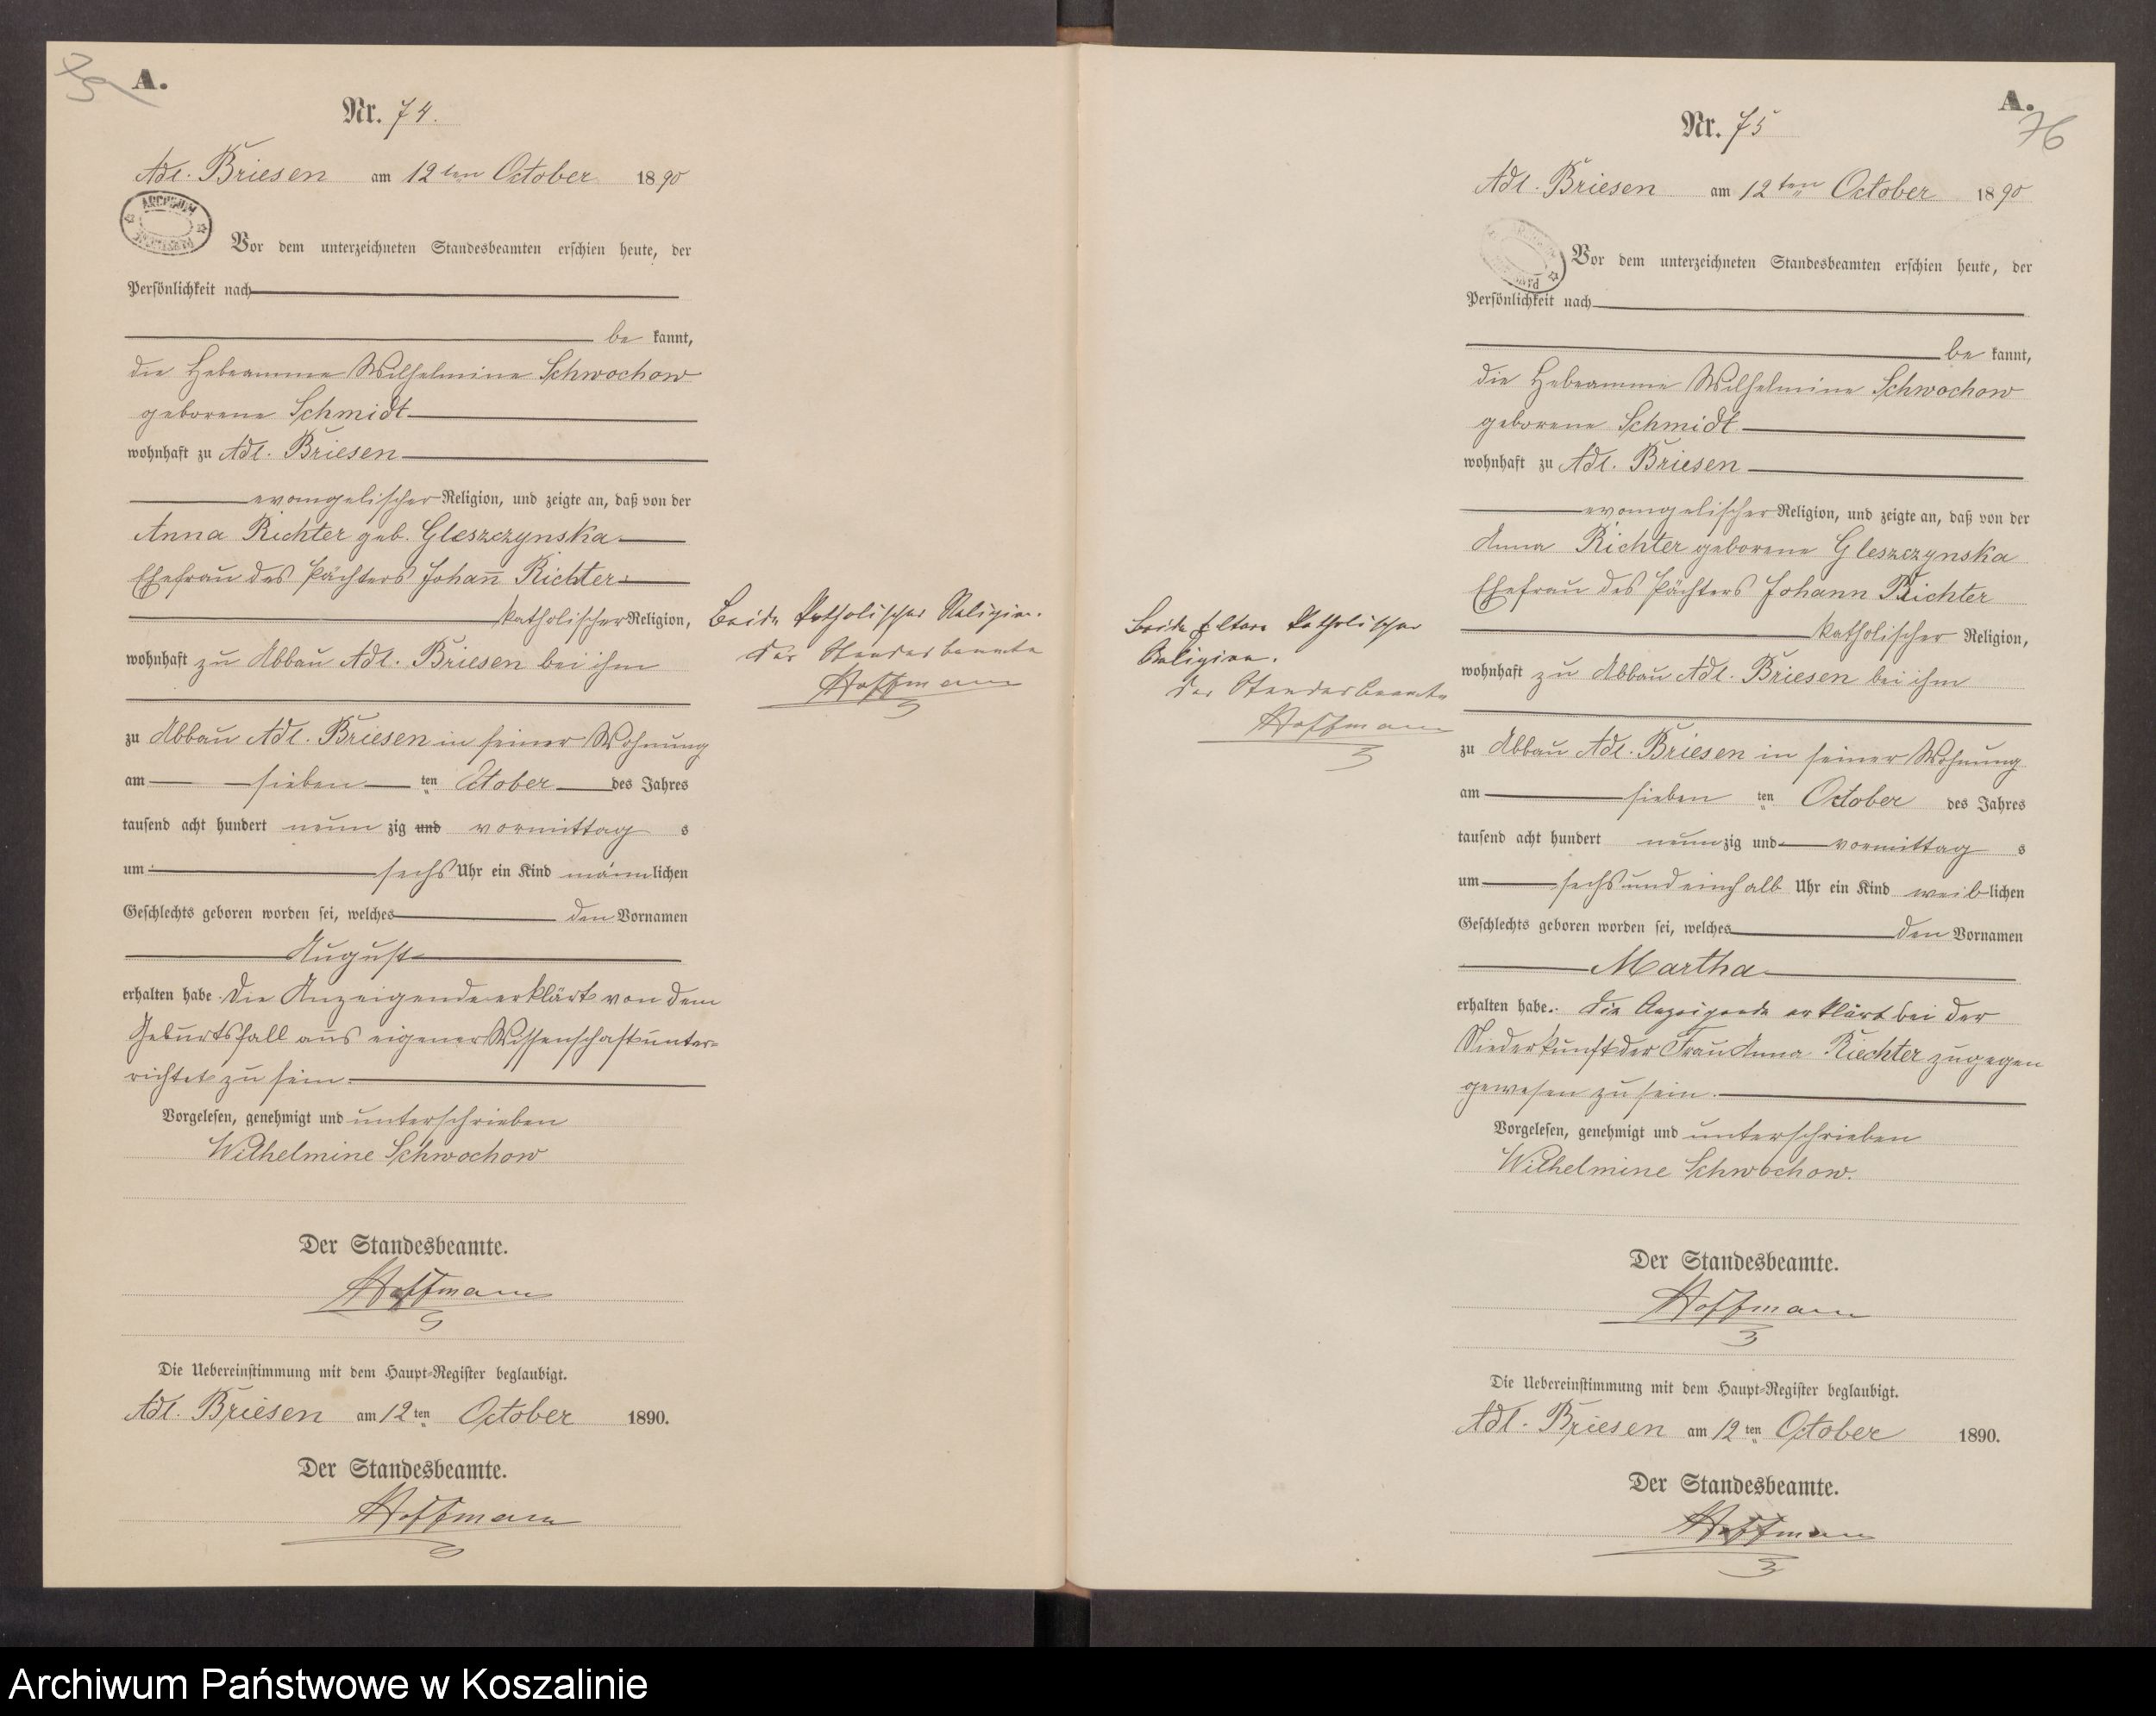 A.
Nr. 74.
Adl. Briesen am 12ten October 1890
ARCHIWUM
Vor dem unterzeichneten Standesbeamten erschien heute, der
Persönlichkeit nach
be kannt,
die Hebeamme Wilhelmine Schwochow
geborene Schmidt
wohnhaft zu Adl. Briesen
evangelischer Religion, und zeigte an, daß von der
Anna Richter geb. Gleszczynska
Ehefrau des Pächters Johann̄ Richter
katholischer Religion,
wohnhaft zu Abbau Adl. Briesen bei ihm
zu Abbau Adl. Briesen in seiner Wohnung
am sieben ten October des Jahres
tausend acht hundert neun zig und vormittag s
um sechs Uhr ein Kind männ lichen
Geschlechts geboren worden sei, welches den Vornamen
August
erhalten habe. Die Anzeigende erklärt von dem
Geburtsfall aus eigener Wissenschaft unter=
richtet zu sein.
Vorgelesen, genehmigt und unterschrieben
Wilhelmine Schwochow
Der Standesbeamte.
Hoffmann
Die Uebereinstimmung mit dem Haupt-Register beglaubigt.
Adl. Briesen am 12 ten October 1890.
Der Standesbeamte.
Hoffmann
Beide katholischer Religion.
Der Standesbeamte
Hoffmann
A.
76
Nr. 75
Adl. Briesen am 12ten October 1890
Vor dem unterzeichneten Standesbeamten erschien heute, der
Persönlichkeit nach
be kannt,
die Hebeamme Wilhelmine Schwochow
geborene Schmidt
wohnhaft zu Adl. Briesen
evangelischer Religion, und zeigte an, daß von der
Anna Richter geborene Gleszczynska
Ehefrau des Pächters Johann Richter
katholischer Religion,
wohnhaft zu Abbau Adl. Briesen bei ihm
zu Abbau Adl. Briesen in seiner Wohnung
am sieben ten October des Jahres
tausend acht hundert neun zig und vormittag s
um sechs und ein halb Uhr ein Kind weib lichen
Geschlechts geboren worden sei, welches den Vornamen
Martha
erhalten habe. Die Anzeigende erklärt bei der
Niederkunft der Frau Anna Riechter zugegen
gewesen zu sein.
Vorgelesen, genehmigt und unterschrieben
Wilhelmine Schwochow.
Der Standesbeamte.
Hoffmann
Die Uebereinstimmung mit dem Haupt-Register beglaubigt.
Adl. Briesen am 12 ten October 1890.
Der Standesbeamte.
Hoffmann
Beide Eltern katholischer
Religion.
Der Standesbeamte
Hoffmann
Archiwum Państwowe w Koszalinie